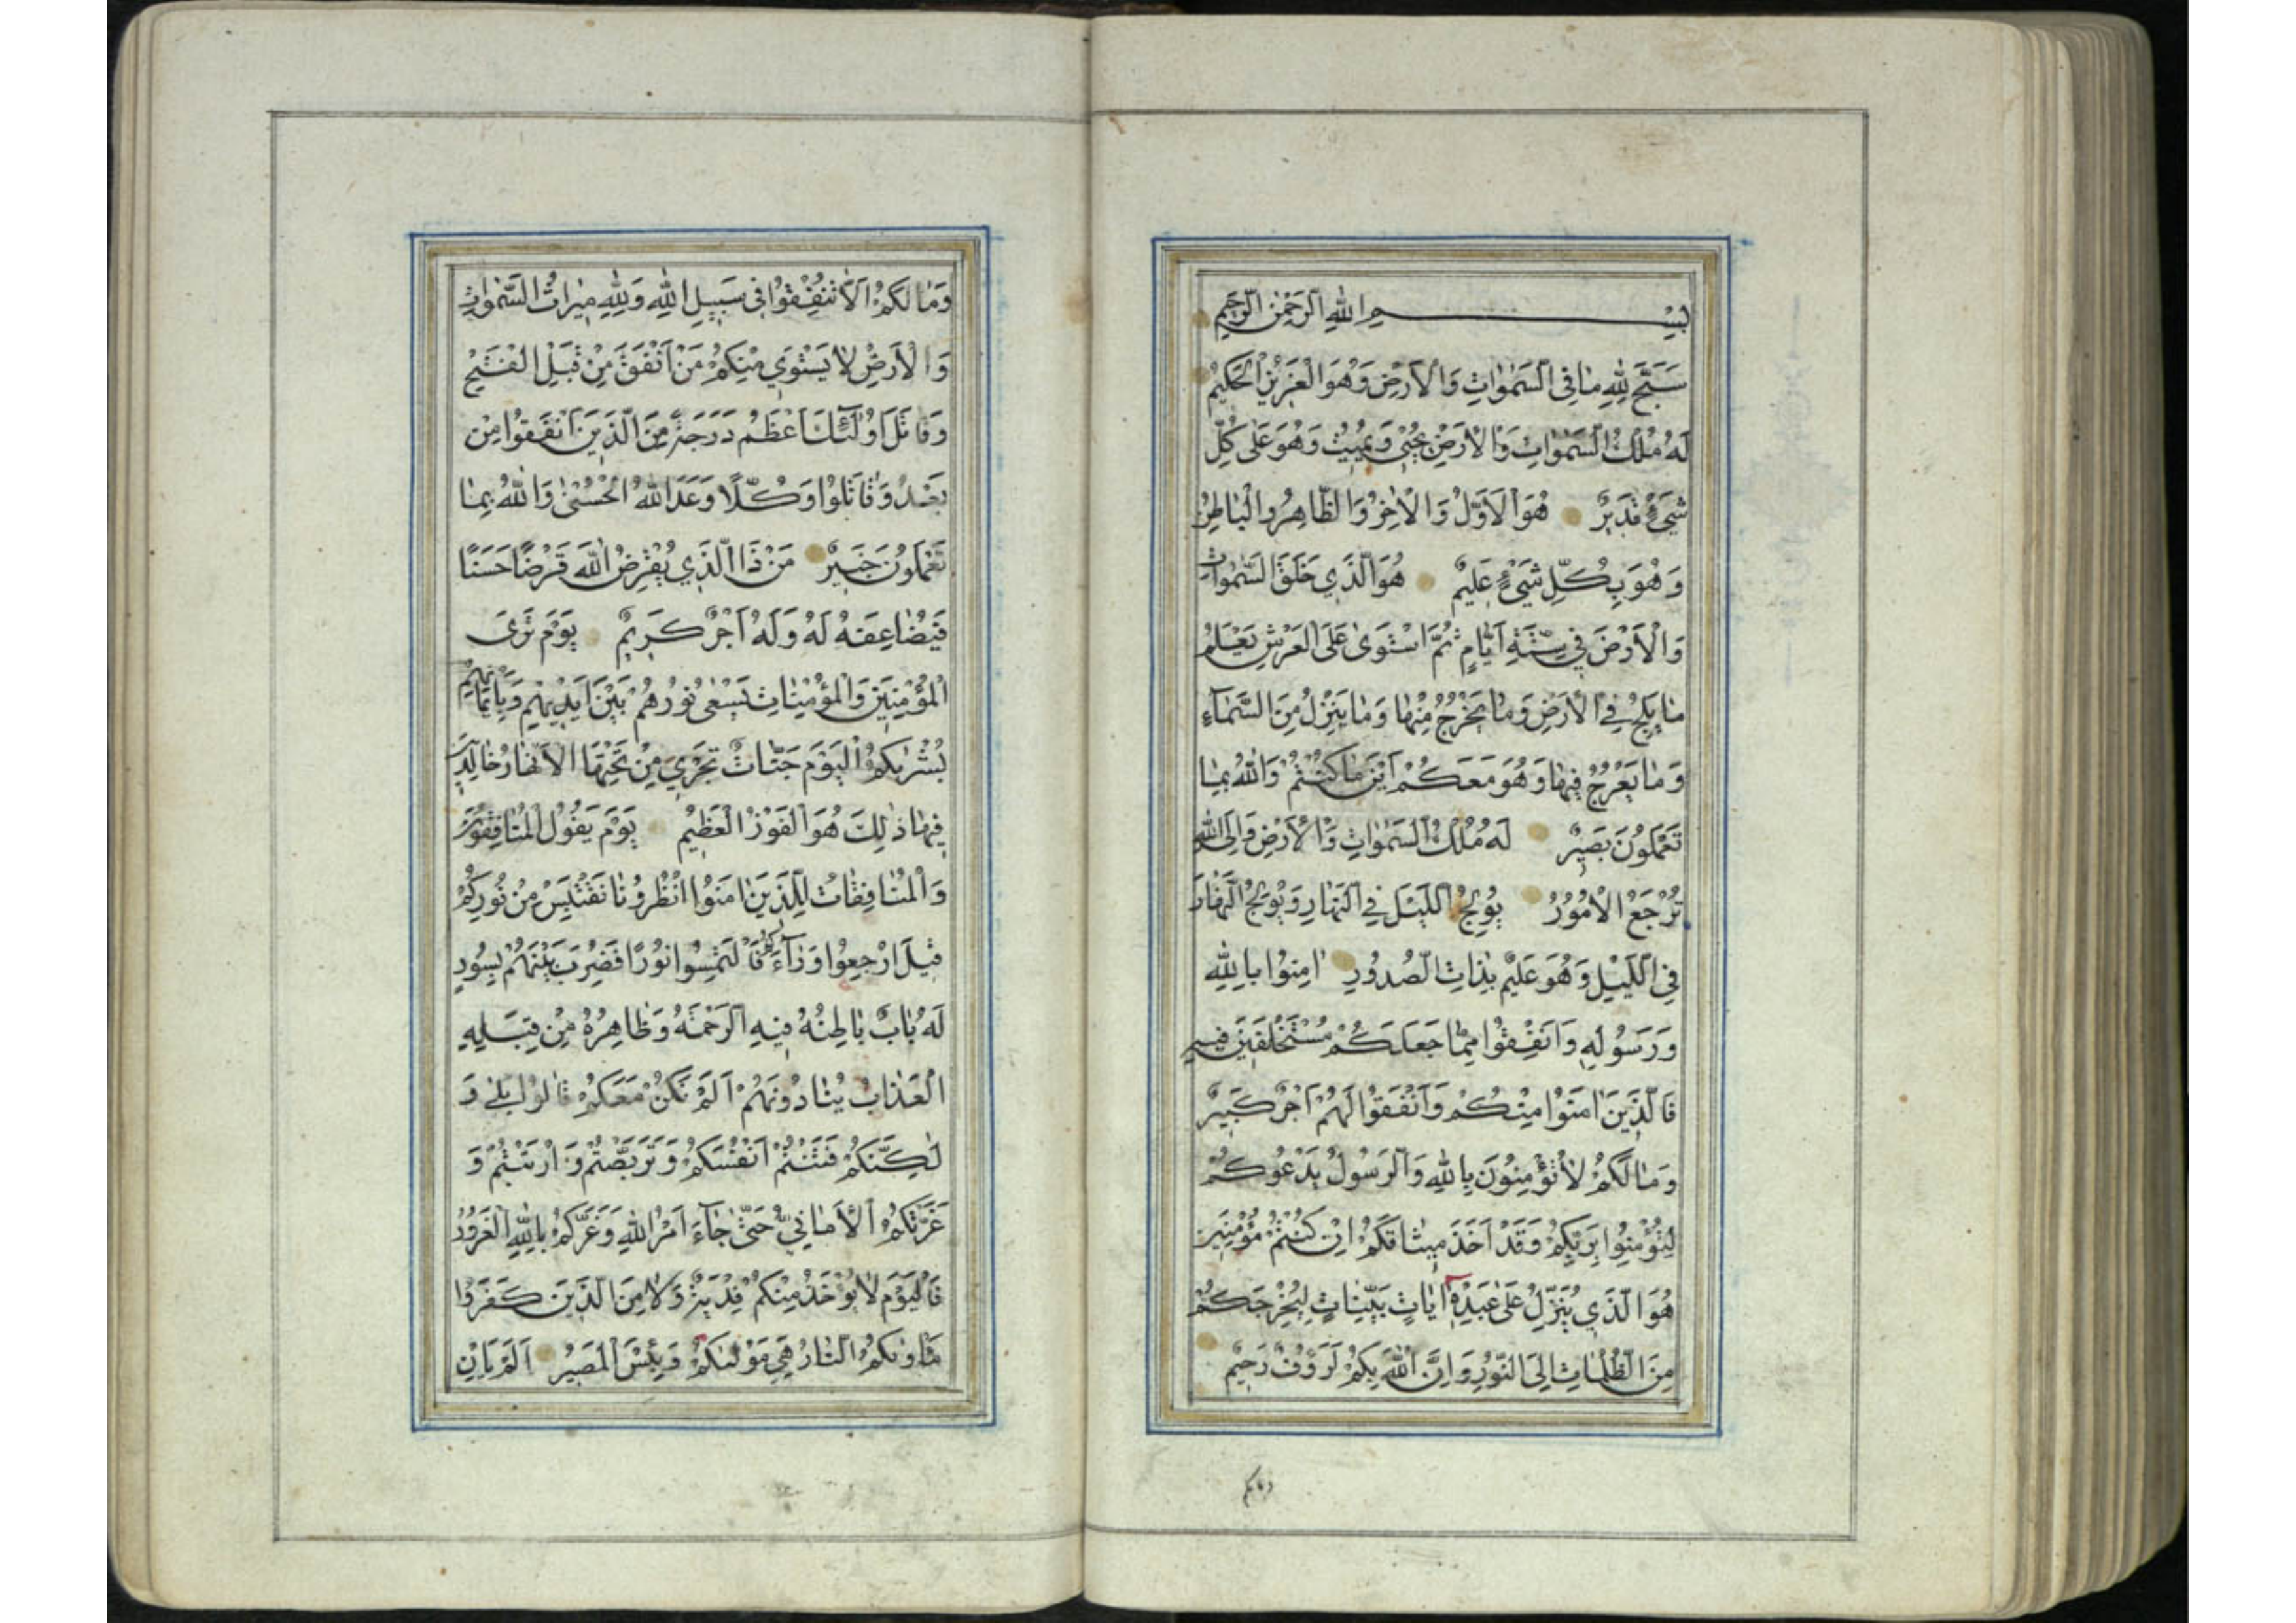 بِسْمِ اللهِ الرَّحْمٰنِ الرَّحِيمِ
سَبَّحَ لِلهِ مَا فِي السَّمٰوَاتِ وَالْاَرْضِ وَهُوَ الْعَزِيزُ الْحَكِيمُ
لَهُ مُلْكُ السَّمٰوَاتِ وَالْاَرْضِ يُحْيِي وَيُمِيتُ وَهُوَ عَلٰى كُلِّ
شَيْءٍ قَدِيرٌ هُوَ الْاَوَّلُ وَالْاٰخِرُ وَالظَّاهِرُ وَالْبَاطِنُ
وَهُوَ بِكُلِّ شَيْءٍ عَلِيمٌ هُوَ الَّذِي خَلَقَ السَّمٰوَاتِ
وَالْاَرْضَ فِي سِتَّةِ اَيَّامٍ ثُمَّ اسْتَوٰى عَلَى الْعَرْشِ يَعْلَمُ
مَا يَلِجُ فِي الْاَرْضِ وَمَا يَخْرُجُ مِنْهَا وَمَا يَنْزِلُ مِنَ السَّمَآءِ
وَمَا يَعْرُجُ فِيهَا وَهُوَ مَعَكُمْ اَيْنَ مَا كُنْتُمْ وَاللهُ بِمَا
تَعْمَلُونَ بَصِيرٌ لَهُ مُلْكُ السَّمٰوَاتِ وَالْاَرْضِ وَاِلَى اللهِ
تُرْجَعُ الْاُمُورُ يُولِجُ اللَّيْلَ فِي النَّهَارِ وَيُولِجُ النَّهَارَ
فِي اللَّيْلِ وَهُوَ عَلِيمٌ بِذَاتِ الصُّدُورِ اٰمِنُوا بِاللهِ
وَرَسُولِهِ وَاَنْفِقُوا مِمَّا جَعَلَكُمْ مُسْتَخْلَفِينَ فِيهِ
فَالَّذِينَ اٰمَنُوا مِنْكُمْ وَاَنْفَقُوا لَهُمْ اَجْرٌ كَبِيرٌ
وَمَا لَكُمْ لَا تُؤْمِنُونَ بِاللهِ وَالرَّسُولُ يَدْعُوكُمْ
لِتُؤْمِنُوا بِرَبِّكُمْ وَقَدْ اَخَذَ مِيثَاقَكُمْ اِنْ كُنْتُمْ مُؤْمِنِينَ
هُوَ الَّذِي يُنَزِّلُ عَلٰى عَبْدِهِ اٰيَاتٍ بَيِّنَاتٍ لِيُخْرِجَكُمْ
مِنَ الظُّلُمَاتِ اِلَى النُّورِ وَاِنَّ اللهَ بِكُمْ لَرَؤُفٌ رَحِيمٌ
وَمَا لَكُمْ اَلَّا تُنْفِقُوا فِي سَبِيلِ اللهِ وَلِلهِ مِيرَاثُ السَّمٰوَاتِ
وَالْاَرْضِ لَا يَسْتَوِي مِنْكُمْ مَنْ اَنْفَقَ مِنْ قَبْلِ الْفَتْحِ
وَقَاتَلَ اُولٰٓئِكَ اَعْظَمُ دَرَجَةً مِنَ الَّذِينَ اَنْفَقُوا مِنْ
بَعْدُ وَقَاتَلُوا وَكُلًّا وَعَدَ اللهُ الْحُسْنٰى وَاللهُ بِمَا
تَعْمَلُونَ خَبِيرٌ مَنْ ذَا الَّذِي يُقْرِضُ اللهَ قَرْضًا حَسَنًا
فَيُضَاعِفَهُ لَهُ وَلَهُ اَجْرٌ كَرِيمٌ يَوْمَ تَرَى
الْمُؤْمِنِينَ وَالْمُؤْمِنَاتِ يَسْعٰى نُورُهُمْ بَيْنَ اَيْدِيهِمْ وَبِاَيْمَانِهِمْ
بُشْرٰيكُمُ الْيَوْمَ جَنَّاتٌ تَجْرِي مِنْ تَحْتِهَا الْاَنْهَارُ خَالِدِينَ
فِيهَا ذٰلِكَ هُوَ الْفَوْزُ الْعَظِيمُ يَوْمَ يَقُولُ الْمُنَافِقُونَ
وَالْمُنَافِقَاتُ لِلَّذِينَ اٰمَنُوا انْظُرُونَا نَقْتَبِسْ مِنْ نُورِكُمْ
قِيلَ ارْجِعُوا وَرَآءَكُمْ فَالْتَمِسُوا نُورًا فَضُرِبَ بَيْنَهُمْ بِسُورٍ
لَهُ بَابٌ بَاطِنُهُ فِيهِ الرَّحْمَةُ وَظَاهِرُهُ مِنْ قِبَلِهِ
الْعَذَابُ يُنَادُونَهُمْ اَلَمْ نَكُنْ مَعَكُمْ قَالُوا بَلٰى وَ
لٰكِنَّكُمْ فَتَنْتُمْ اَنْفُسَكُمْ وَتَرَبَّصْتُمْ وَارْتَبْتُمْ وَ
غَرَّتْكُمُ الْاَمَانِيُّ حَتّٰى جَآءَ اَمْرُ اللهِ وَغَرَّكُمْ بِاللهِ الْغَرُورُ
فَالْيَوْمَ لَا يُؤْخَذُ مِنْكُمْ فِدْيَةٌ وَلَا مِنَ الَّذِينَ كَفَرُوا
مَاْوٰيكُمُ النَّارُ هِيَ مَوْلٰيكُمْ وَبِئْسَ الْمَصِيرُ اَلَمْ يَاْنِ